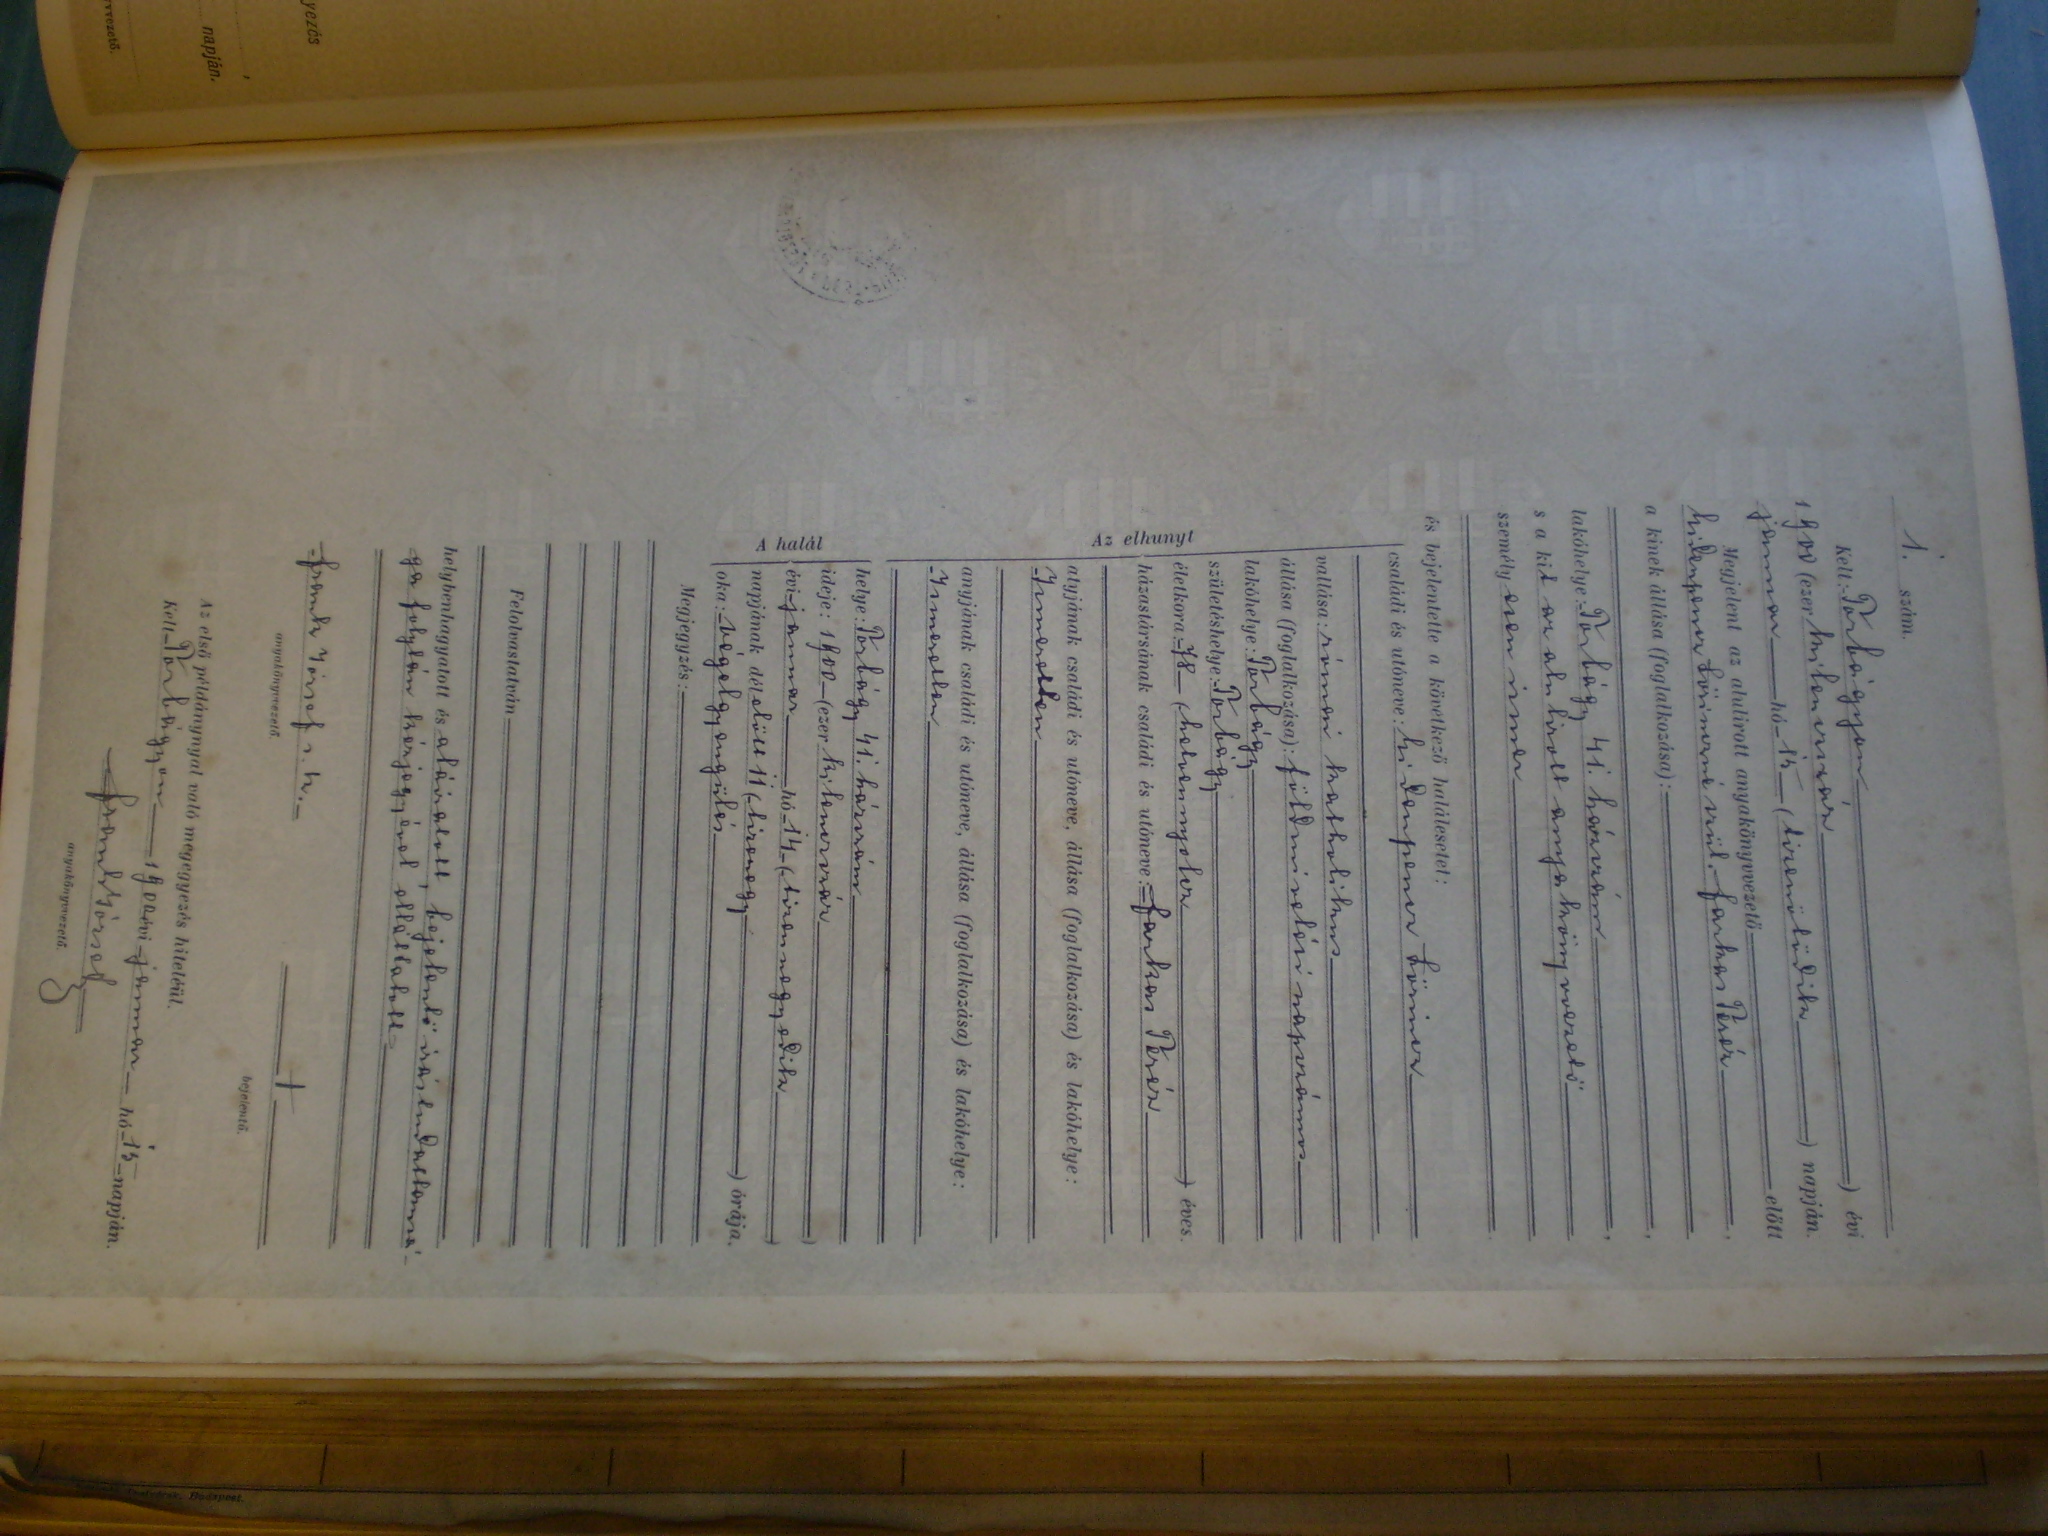 1. szám.
Kelt Torbágyon
1900 (ezer kilenczszáz) évi
januar hó 15 (tizenötödik) napján.
Megjelent az alulirott anyakönyvvezető előtt
született Farkas Teréz,
a kinek állása (foglalkozása):
,
lakóhelye: Torbágy 41. házszám,
s a kit az alulirott anyakönyvvezető
személyesen ismer
és bejelentette a következő halálesetet:
Az elhunyt
családi és utóneve:
vallása: római katholikus
állása (foglalkozása): földmivelési napszámos
lakóhelye: Torbágy
születéshelye: Torbágy
életkora: 78 (hetvennyolcz) éves.
házastársának családi és utóneve: Farkas Teréz
atyjának családi és utóneve, állása (foglalkozása) és lakóhelye:
Ismeretlen
anyjának családi és utóneve, állása (foglalkozása) és lakóhelye:
Ismeretlen
A halál
helye: Torbágy 41. házszám
ideje: 1900 (ezer kilenczszáz)
évi januar hó 14 (tizennegyedik)
napjának délelőtt 11 (tizenegy) órája.
oka: végelgyengülés
Megjegyzés:
Felolvastatván
helybenhagyatott és aláiratott, bejelentő irástudatlansá-
ga folytán kézjegyével elláttatott
Frank József s. k.
anyakönyvvezető.
+
bejelentő.
Az első példánynyal való megegyezés hiteléül.
Kelt Torbágyon 1900 évi januar hó 15 napján.
Frank József
anyakönyvvezető.
napján.